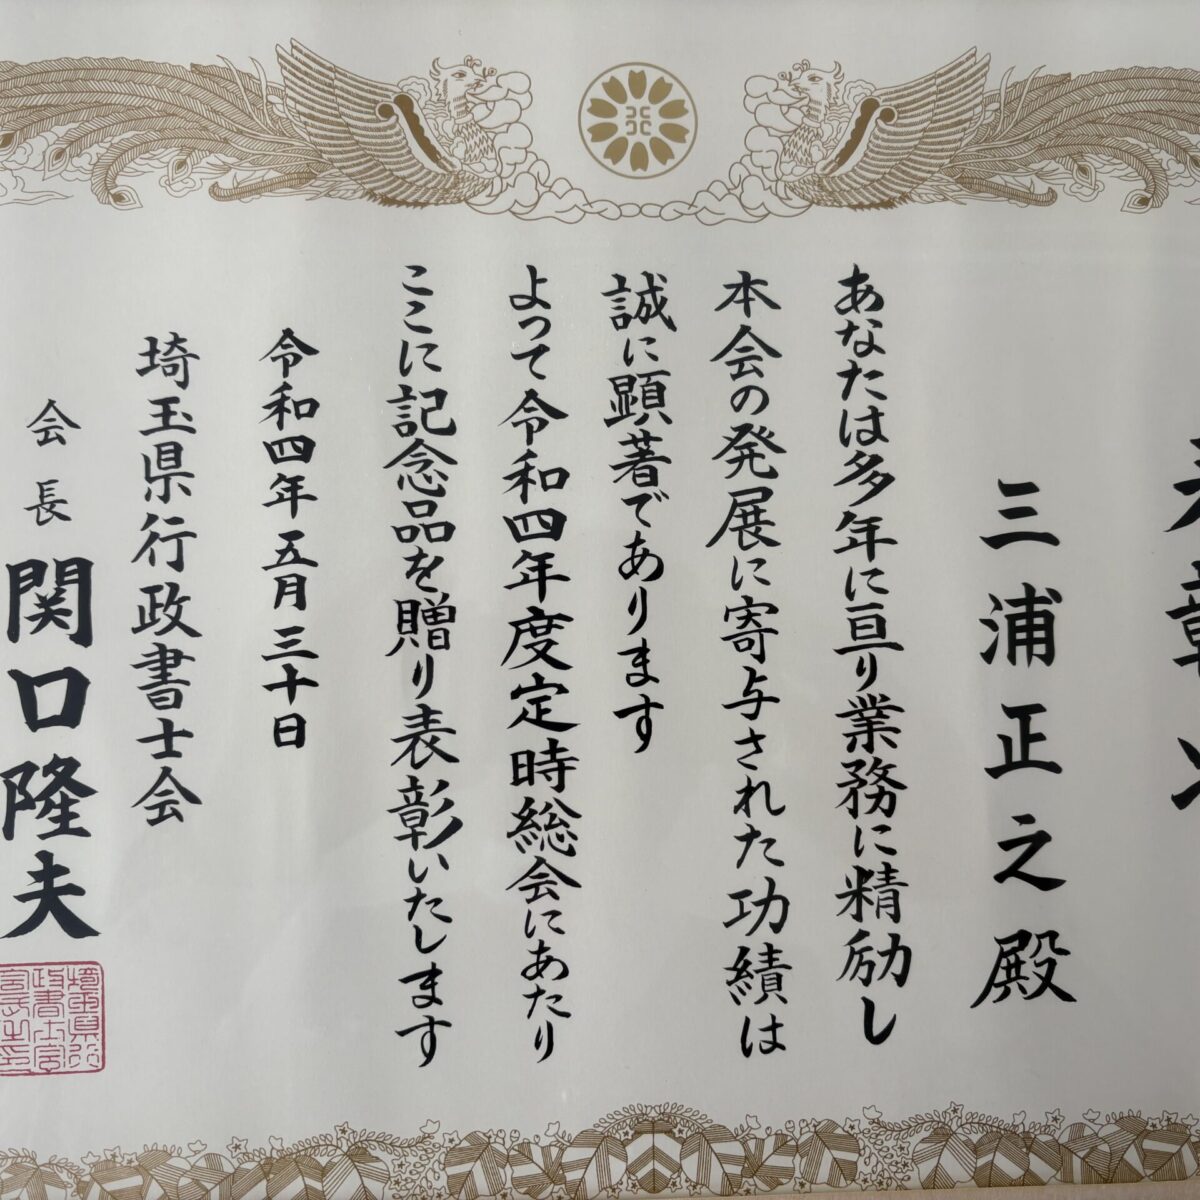 表彰状
三浦正之殿
あなたは多年に亘り業務に精励し
本会の発展に寄与された功績は
誠に顕著であります
よって令和四年度定時総会にあたり
ここに記念品を贈り表彰いたします
令和四年五月三十日
埼玉県行政書士会
会長 関口隆夫